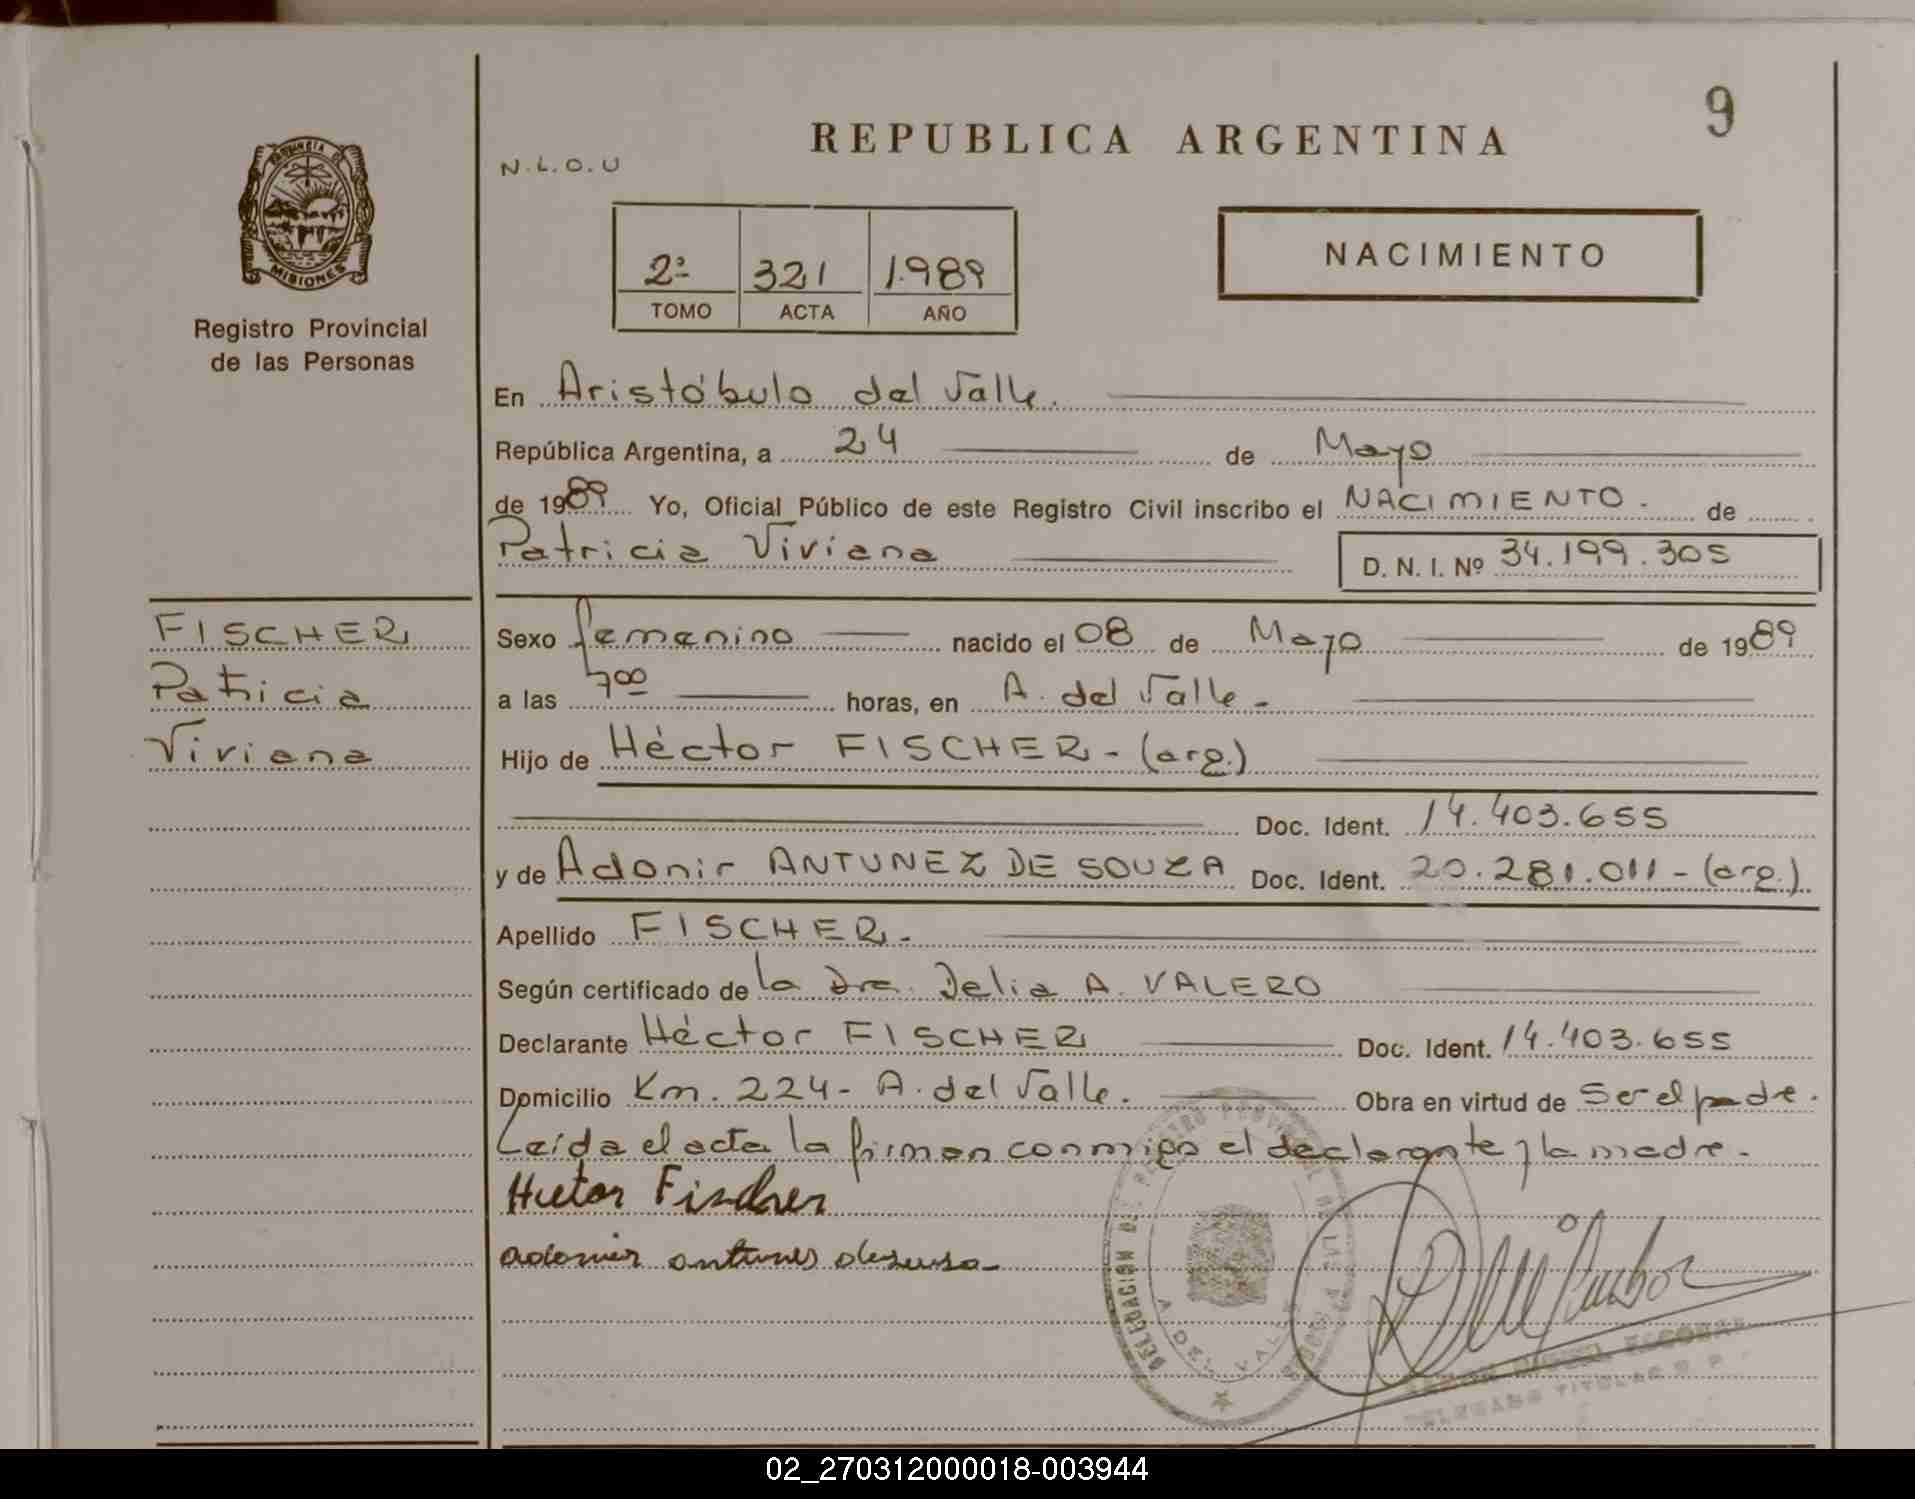 9
REPUBLICA ARGENTINA
N.L.O.U
PROVINCIA DE
MISIONES
Registro Provincial
de las Personas
2ª 321 1.989
TOMO ACTA AÑO
NACIMIENTO
En Aristóbulo del Valle.
República Argentina, a 24 de Mayo
de 1989 Yo, Oficial Público de este Registro Civil inscribo el NACIMIENTO. de
Patricia Viviana
D. N. I. Nº 34.199.305
FISCHER
Patricia
Viviana
Sexo femenino nacido el 08 de Mayo de 1989
a las 7⁰⁰ horas, en A. del Valle.
Hijo de Héctor FISCHER - (arg.)
Doc. Ident. 14.403.655
y de Adonir ANTUNEZ DE SOUZA Doc. Ident. 20.281.011 - (arg.)
Apellido FISCHER.
Según certificado de la Dra. Delia A. VALERO
Declarante Héctor FISCHER Doc. Ident. 14.403.655
Domicilio Km. 224 - A. del Valle. Obra en virtud de ser el padre.
Leída el acta la firman conmigo el declarante y la madre.
Hector Fischer
adonir antunes desusa
DELEGACION DEL REGISTRO PROVINCIAL DE LAS PERSONAS
A. DEL VALLE
DELEGADO TITULAR R. P.
02_270312000018-003944